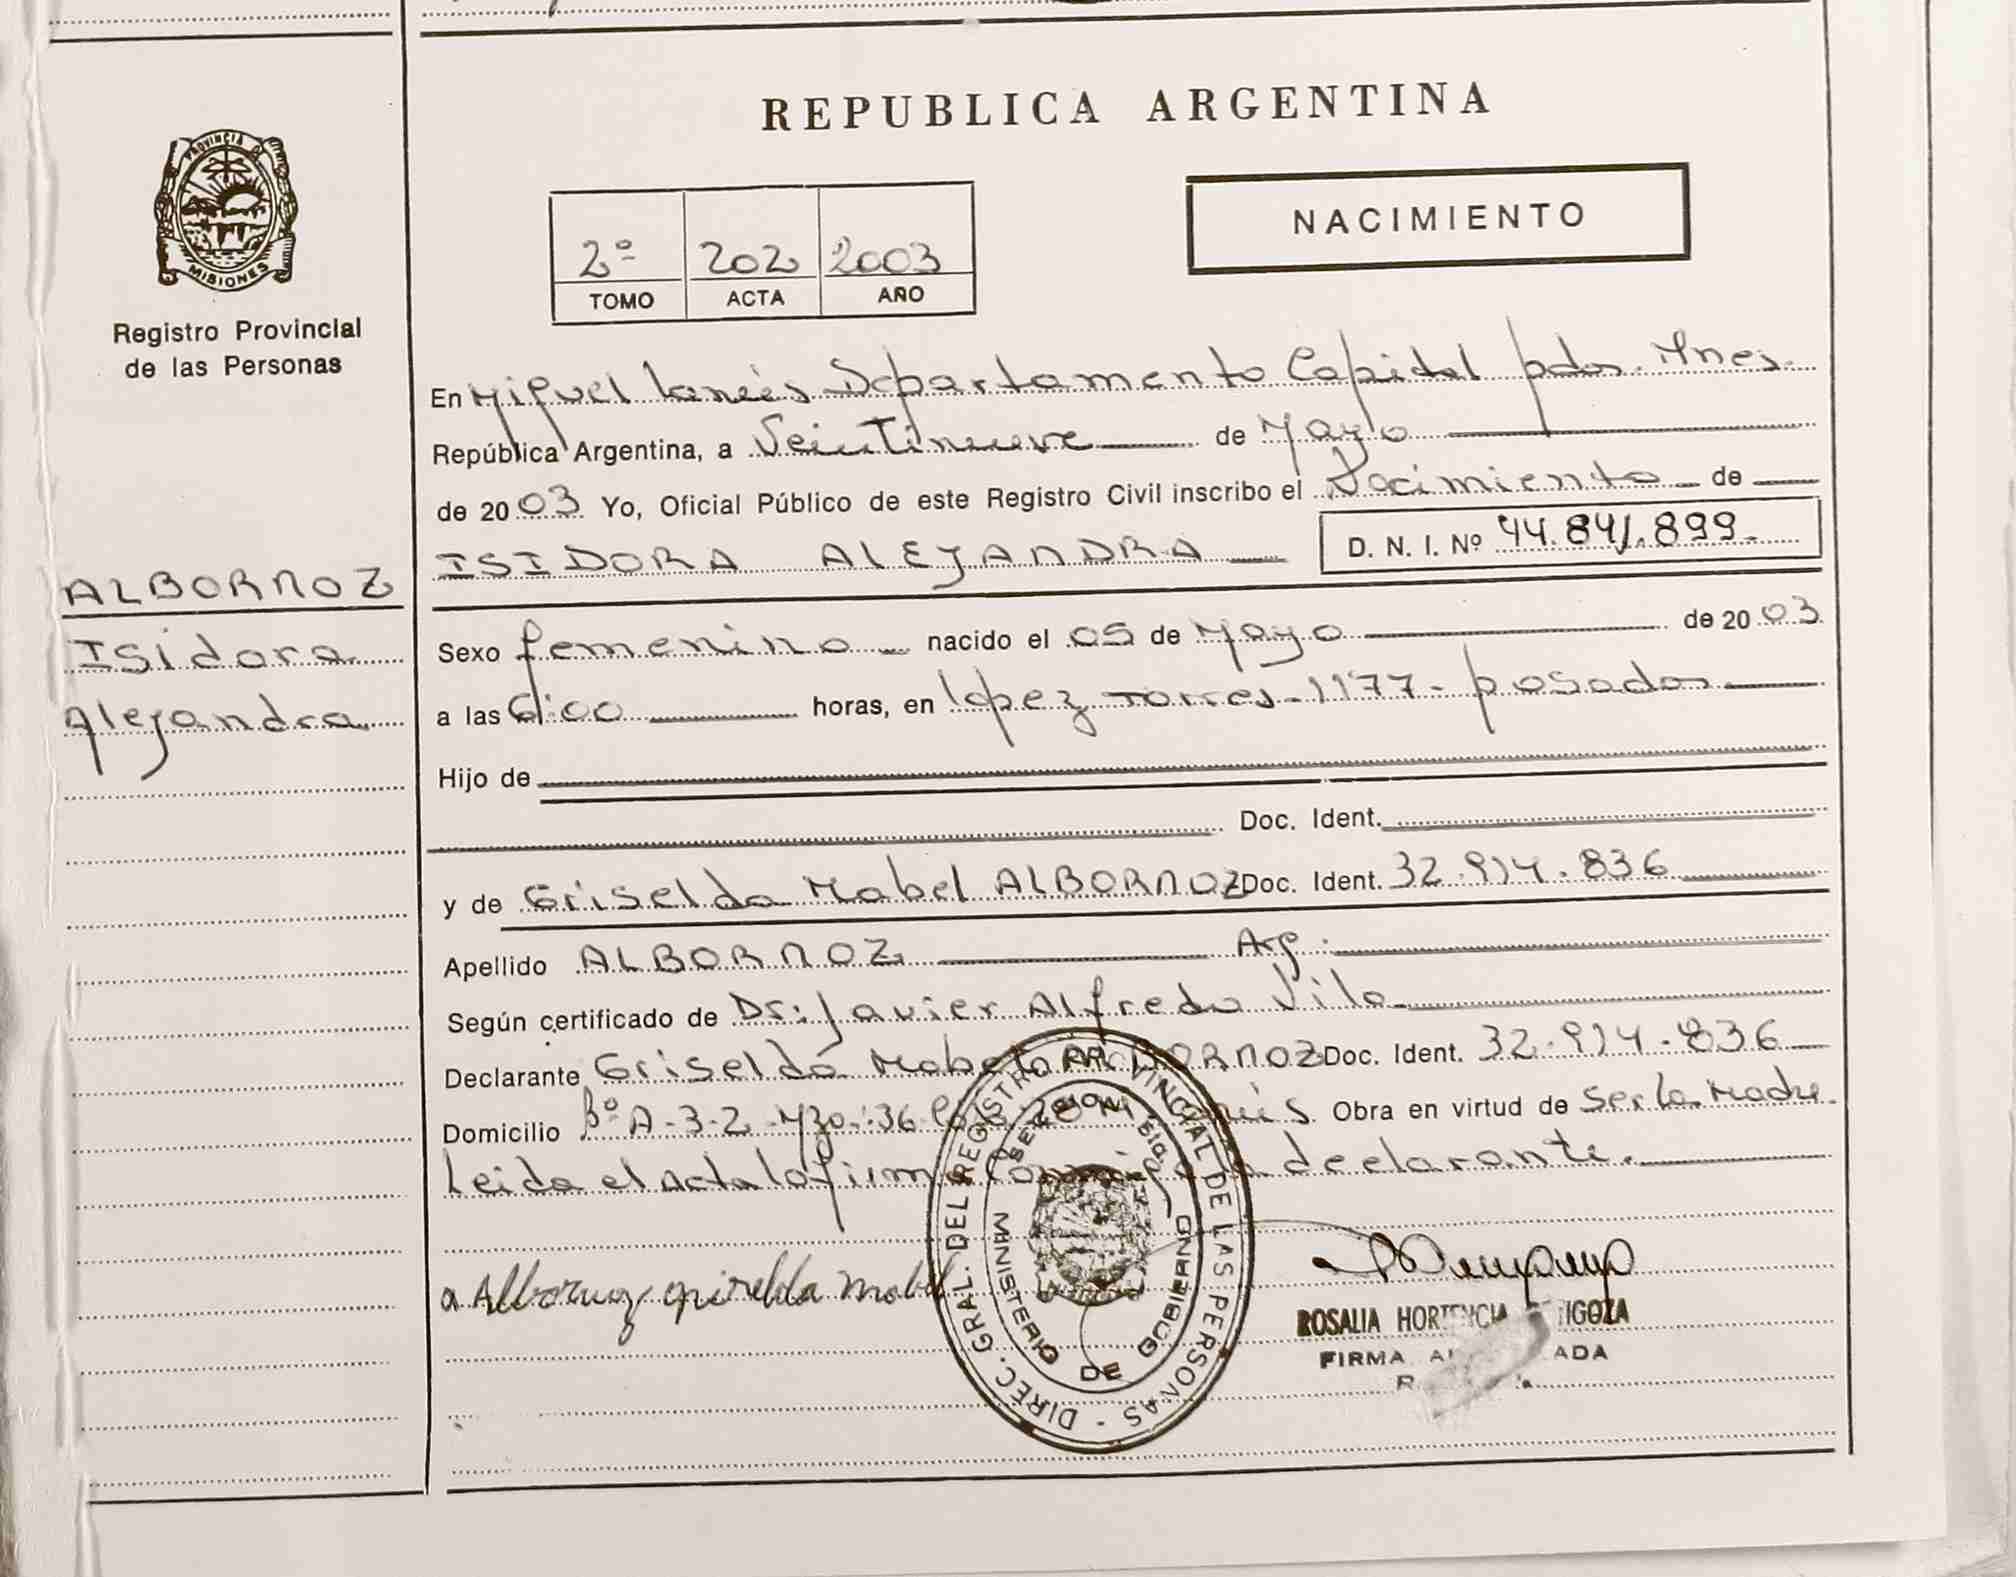 REPUBLICA ARGENTINA
PROVINCIA DE MISIONES
Registro Provincial
de las Personas
NACIMIENTO
2º 202 2003
TOMO ACTA AÑO
En Miguel Lanús Departamento Capital pdas. Mnes.
República Argentina, a Veintinueve de Mayo
de 2003 Yo, Oficial Público de este Registro Civil inscribo el Nacimiento de
ISIDORA ALEJANDRA
D. N. I. Nº 44.841.899.
ALBORNOZ
Isidora
Alejandra
Sexo femenino nacido el 05 de Mayo de 2003
a las 6:00 horas, en López Torres-1177-posadas
Hijo de
Doc. Ident.
y de Griselda Mabel ALBORNOZ Doc. Ident. 32.914.836
Apellido ALBORNOZ Arg.
Según certificado de Dr: Javier Alfredo Vila
Declarante Griselda Mabel ALBORNOZ Doc. Ident. 32.914.836
Domicilio Bº A-3-2- Mzo:36 Obra en virtud de Ser la Madre.
Leida el acta la firma conmigo la declarante.
a Albornoz griselda mabel
DIREC. GRAL. DEL REGISTRO PROVINCIAL DE LAS PERSONAS -
MINISTERIO DE GOBIERNO
ROSALIA HORTENCIA
FIRMA